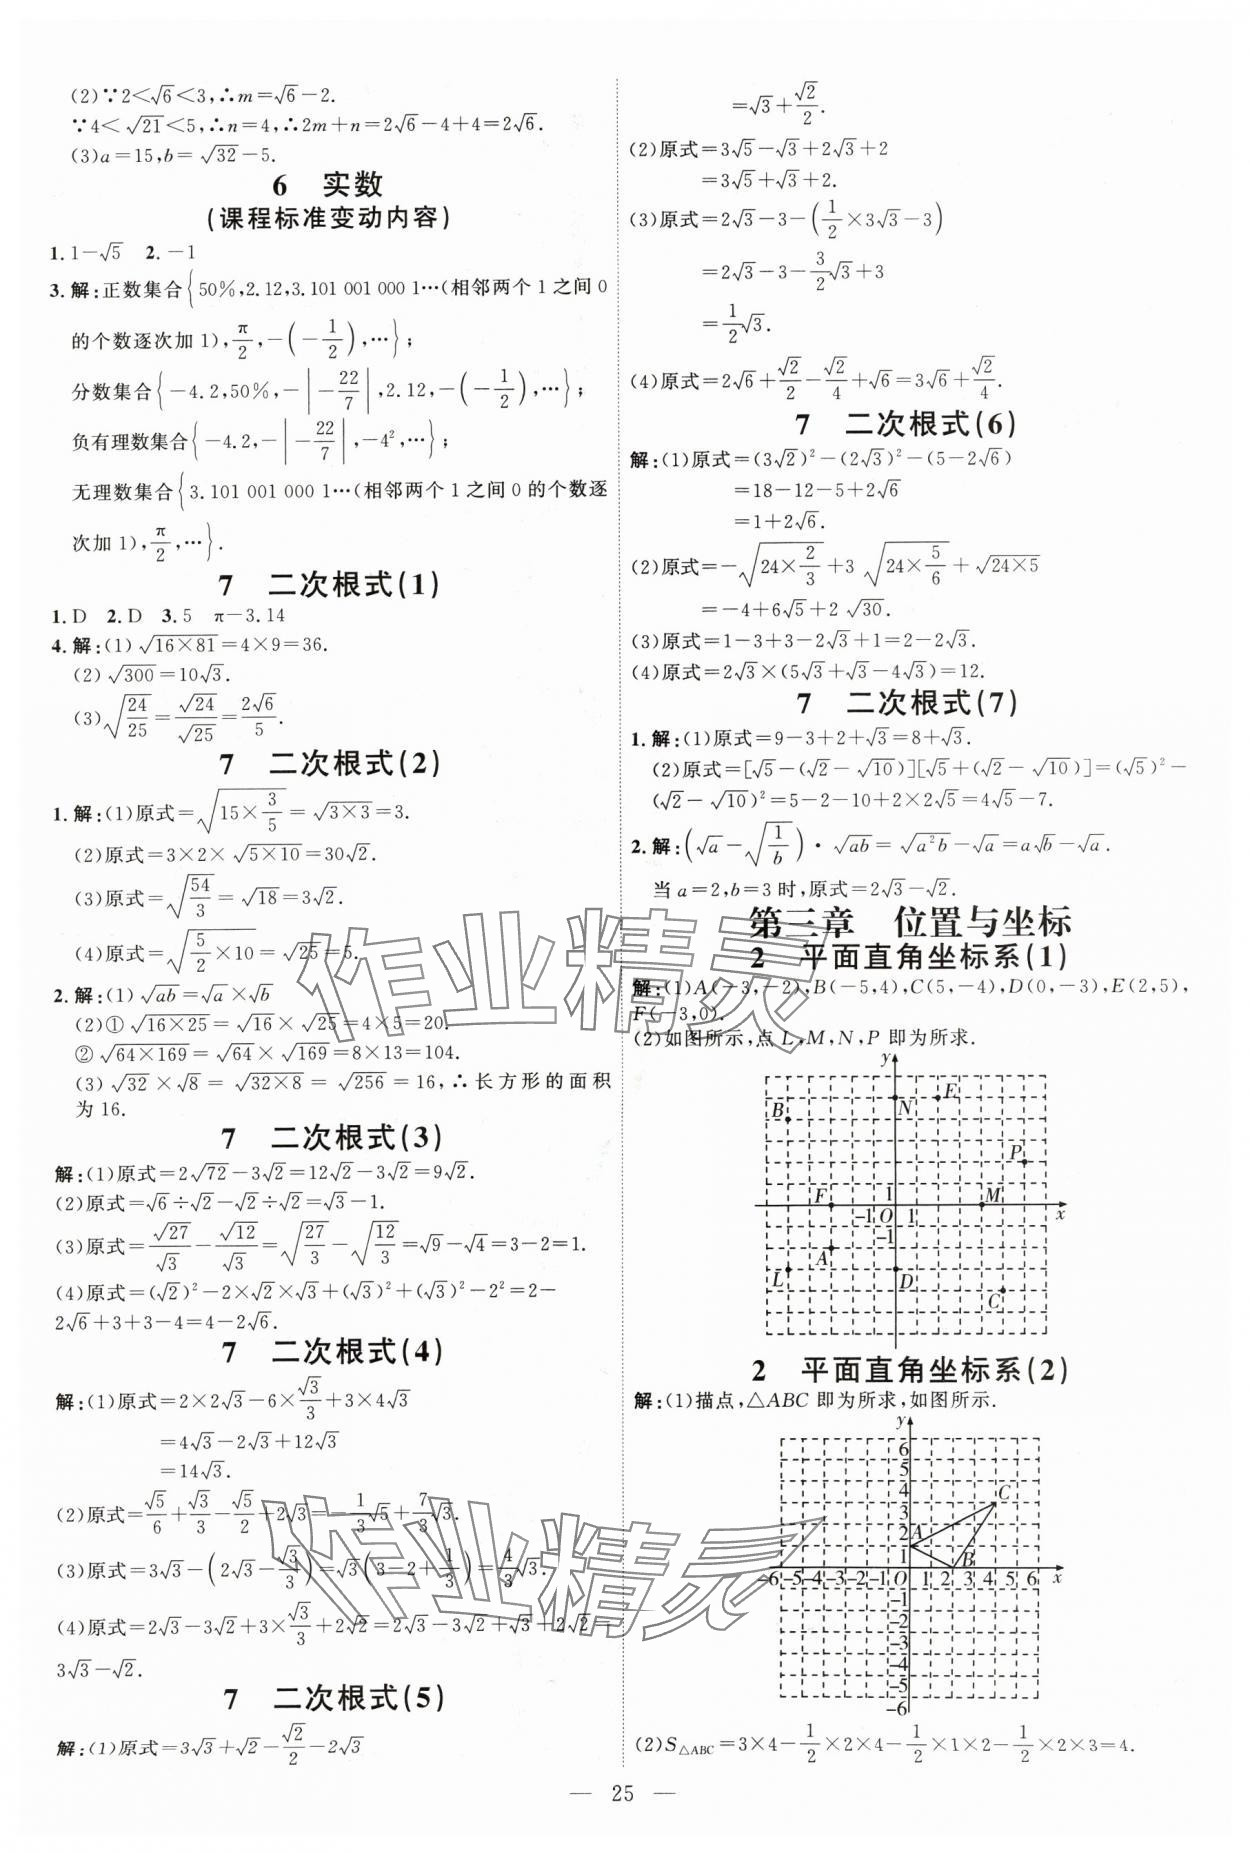 (2)∵2<√6<3,∴m=√6-2.
∵4<√21<5,∴n=4,∴2m+n=2√6-4+4=2√6.
(3)a=15,b=√32-5.
6 实数
(课程标准变动内容)
1.1-√5 2.-1
3.解:正数集合{50%,2.12,3.101 001 000 1…(相邻两个1之间0
的个数逐次加1),π/2,-(-1/2),…};
分数集合{-4.2,50%,-|-22/7|,2.12,-(-1/2),…};
负有理数集合{-4.2,-|-22/7|,-4²,…};
无理数集合{3.101 001 000 1…(相邻两个1之间0的个数逐
次加1),π/2,…}.
7 二次根式(1)
1.D 2.D 3.5 π-3.14
4.解:(1)√(16×81)=4×9=36.
(2)√300=10√3.
(3)√(24/25)=√24/√25=2√6/5.
7 二次根式(2)
1.解:(1)原式=√(15×3/5)=√(3×3)=3.
(2)原式=3×2×√(5×10)=30√2.
(3)原式=√(54/3)=√18=3√2.
(4)原式=√(5/2×10)=√25=5.
2.解:(1)√ab=√a×√b
(2)①√(16×25)=√16×√25=4×5=20.
②√(64×169)=√64×√169=8×13=104.
(3)√32×√8=√(32×8)=√256=16,∴长方形的面积
为16.
7 二次根式(3)
解:(1)原式=2√72-3√2=12√2-3√2=9√2.
(2)原式=√6÷√2-√2÷√2=√3-1.
(3)原式=√27/√3-√12/√3=√(27/3)-√(12/3)=√9-√4=3-2=1.
(4)原式=(√2)²-2×√2×√3+(√3)²+(√3)²-2²=2-
2√6+3+3-4=4-2√6.
7 二次根式(4)
解:(1)原式=2×2√3-6×√3/3+3×4√3
=4√3-2√3+12√3
=14√3.
(2)原式=√5/6+√3/3-√5/2+2√3=-1/3√5+7/3√3.
(3)原式=3√3-(2√3-√3/3)=√3(3-2+1/3)=4/3√3.
(4)原式=2√3-3√2+3×√3/3+2√2=2√3-3√2+√3+2√2=
3√3-√2.
7 二次根式(5)
解:(1)原式=3√3+√2-√2/2-2√3
=√3+√2/2.
(2)原式=3√5-√3+2√3+2
=3√5+√3+2.
(3)原式=2√3-3-(1/2×3√3-3)
=2√3-3-3/2√3+3
=1/2√3.
(4)原式=2√6+√2/2-√2/4+√6=3√6+√2/4.
7 二次根式(6)
解:(1)原式=(3√2)²-(2√3)²-(5-2√6)
=18-12-5+2√6
=1+2√6.
(2)原式=-√(24×2/3)+3√(24×5/6)+√(24×5)
=-4+6√5+2√30.
(3)原式=1-3+3-2√3+1=2-2√3.
(4)原式=2√3×(5√3+√3-4√3)=12.
7 二次根式(7)
1.解:(1)原式=9-3+2+√3=8+√3.
(2)原式=[√5-(√2-√10)][√5+(√2-√10)]=(√5)²-
(√2-√10)²=5-2-10+2×2√5=4√5-7.
2.解:(√a-√(1/b))·√ab=√(a²b)-√a=a√b-√a.
当a=2,b=3时,原式=2√3-√2.
第三章 位置与坐标
2 平面直角坐标系(1)
解:(1)A(-3,-2),B(-5,4),C(5,-4),D(0,-3),E(2,5),
F(-3,0).
(2)如图所示,点L,M,N,P即为所求.
y
B N E
P
F 1 M
-1 O 1 x
-1
A
L D C
2 平面直角坐标系(2)
解:(1)描点,△ABC即为所求,如图所示.
y
6
5
4
3 C
2 A
1 B
-6-5-4-3-2-1 O 1 2 3 4 5 6 x
-1
-2
-3
-4
-5
-6
(2)S△ABC=3×4-1/2×2×4-1/2×1×2-1/2×2×3=4.
— 25 —
作业精灵
作业精灵